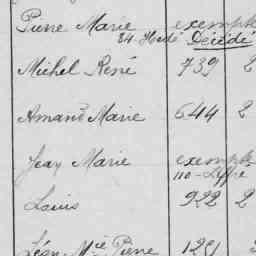 Pierre Marie exempté
84-Hédé Décédé
Michel René 739 2
Amand Marie 644 2
Jean Marie exempté
110-Liffré
Louis 922 2
Léon Mie Pierre 1251